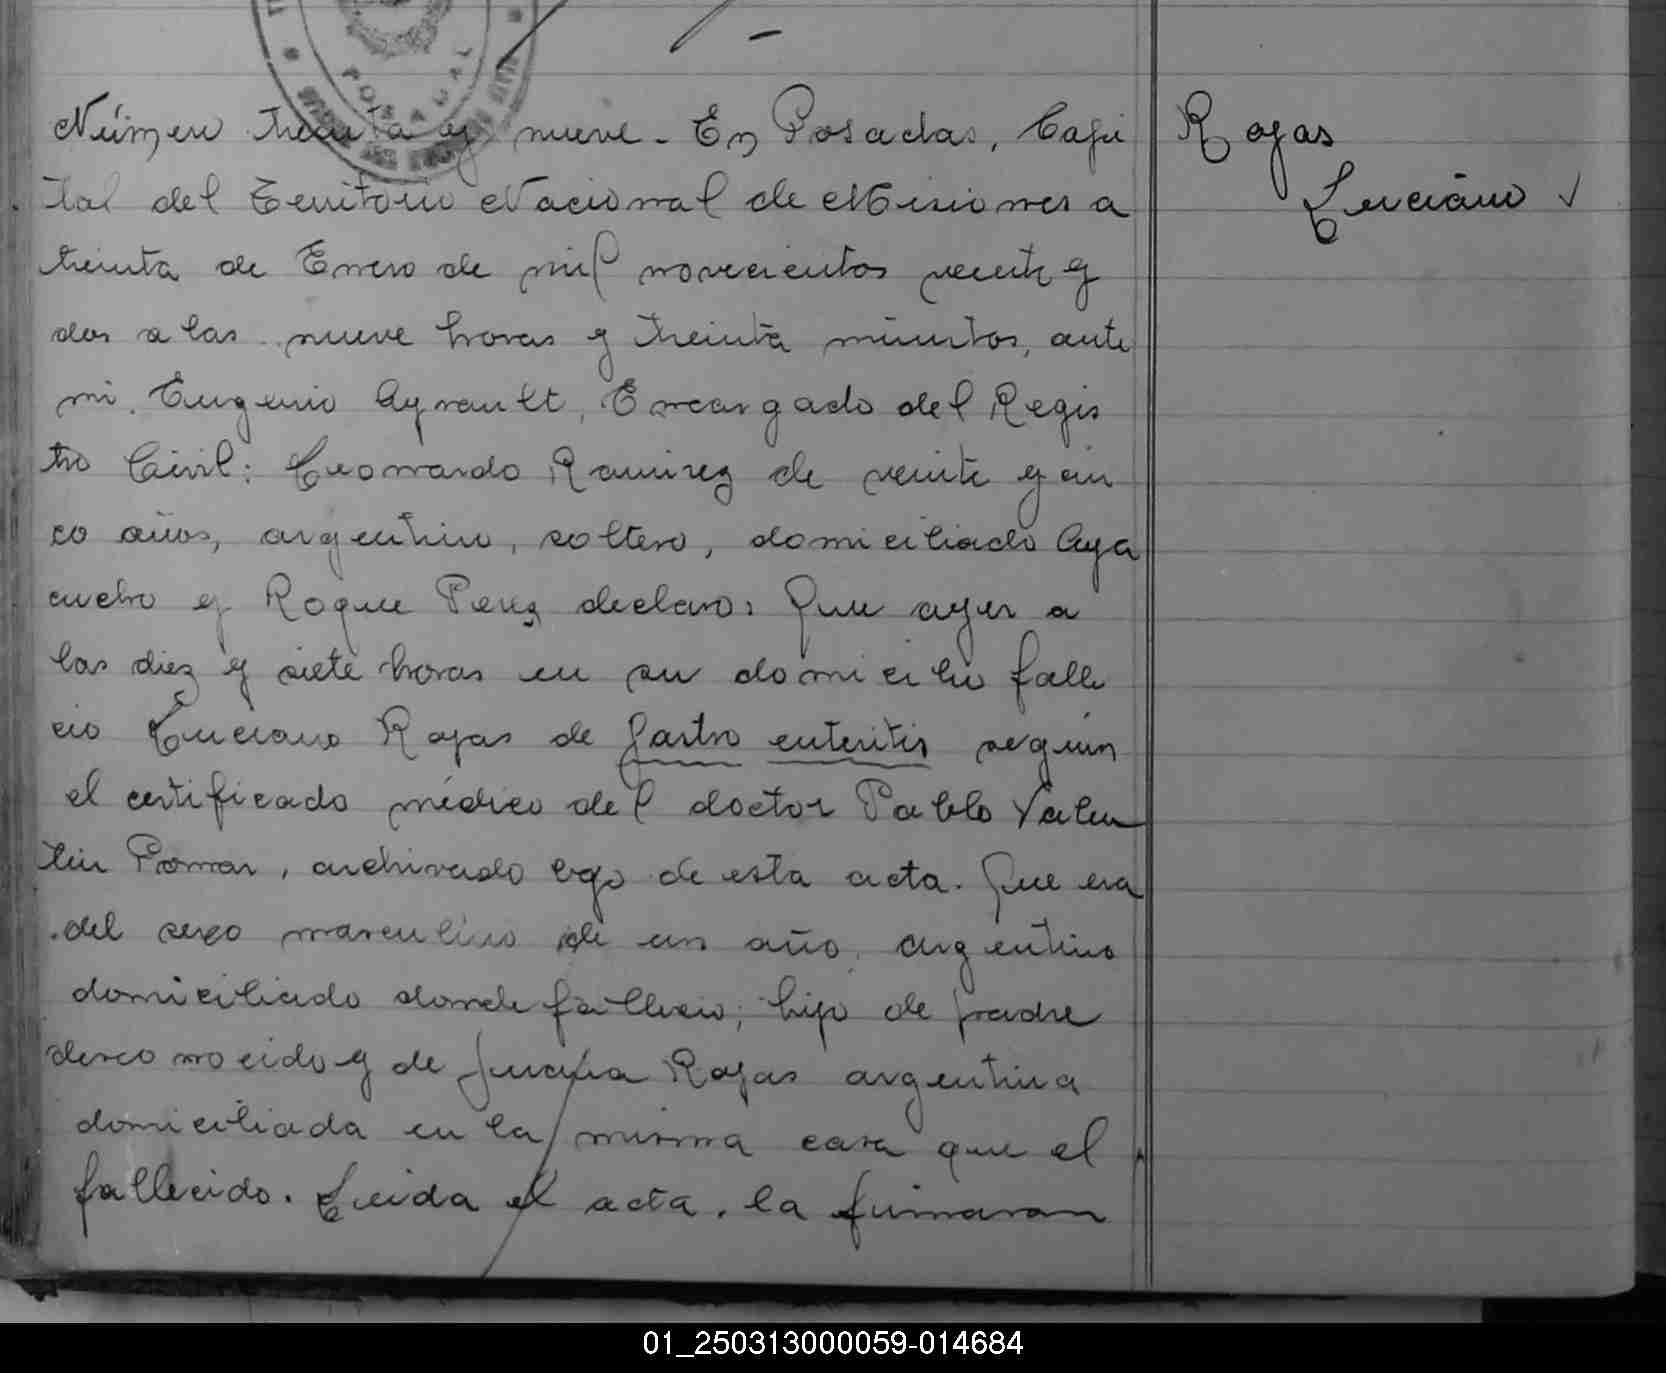 Número treinta y nueve. En Posadas, Capi
tal del Territorio Nacional de Misiones a
treinta de Enero de mil novecientos veinte y
dos a las nueve horas y treinta minutos, ante
mi, Eugenio Ayrault, Encargado del Regis
tro Civil: Leonardo Ramirez de veinte y cin
co años, argentino, soltero, domiciliado Aya
cucho y Roque Perez declaro: Que ayer a
las diez y siete horas en su domicilio falle
cio Luciano Rojas de gastro enteritis según
el certificado médico del doctor Pablo Valen
tin Pomar, archivado bajo de esta acta. Que era
del sexo masculino de un año, argentino
domiciliado donde fallecio; hijo de padre
desconocido y de Juana Rojas argentina
domiciliada en la misma casa que el
fallecido. Leida el acta, la firmaron
Rojas
Luciano ✓
POSADAS
01_250313000059-014684